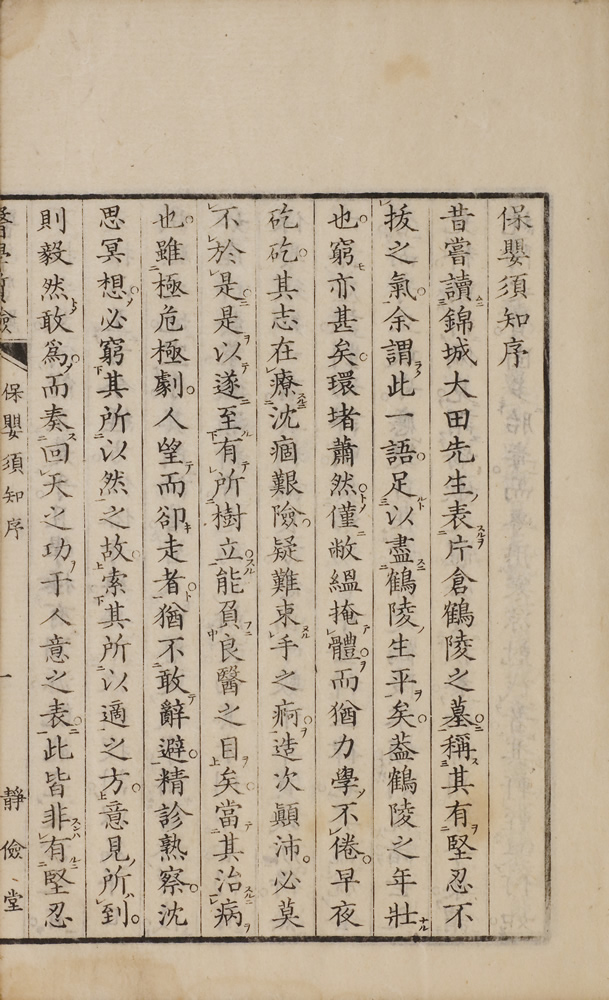 保嬰須知序
昔嘗讀錦城大田先生表片倉鶴陵之墓稱其有堅忍不
拔之氣余謂此一語足以盡鶴陵生平矣葢鶴陵之年壯
也窮亦甚矣環堵蕭然僅敝縕掩體而猶力學不倦早夜
矻矻其志在療沈痼艱險疑難束手之痾造次顛沛必莫
不於是是以遂至有所樹立能負良醫之目矣當其治病
也雖極危極劇人望而卻走者猶不敢辭避精診熟察沈
思冥想必窮其所以然之故索其所以適之方意見所到
則毅然敢爲而奏回天之功于人意之表此皆非有堅忍
保嬰須知序
一
靜儉堂